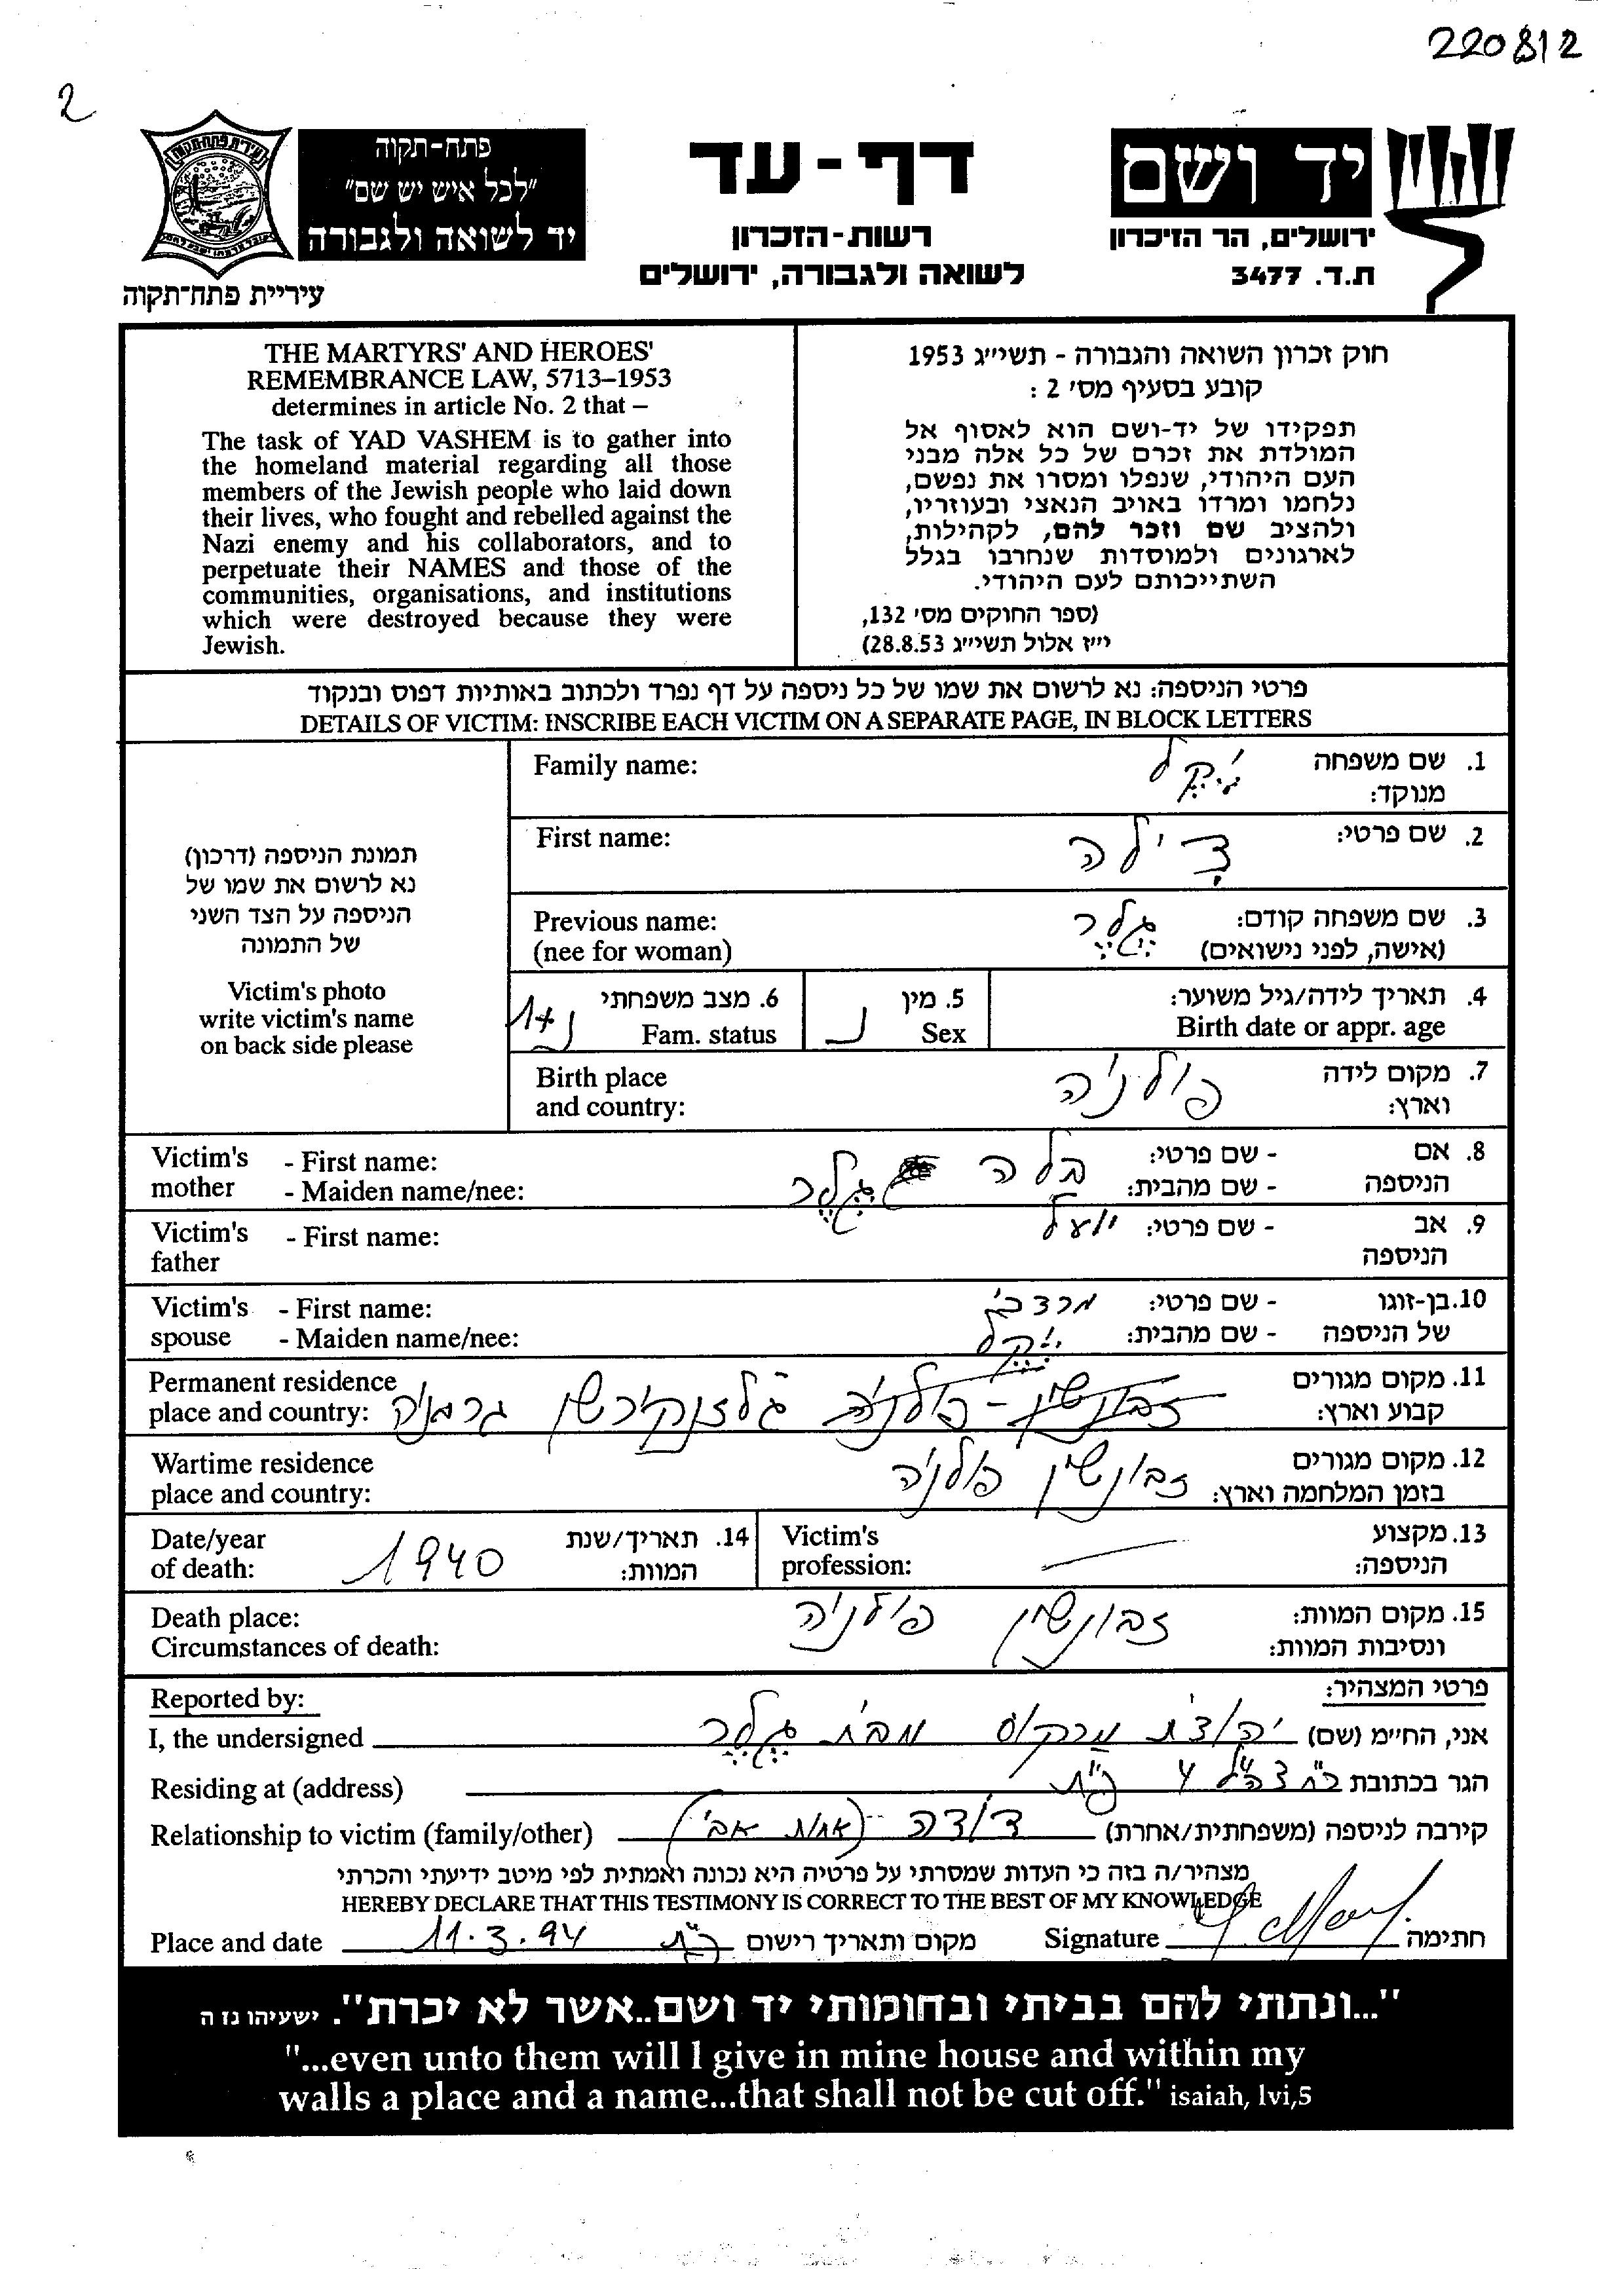 220812
2
פתח-תקוה
"לכל איש יש שם"
יד לשואה ולגבורה
עיריית פתח-תקוה
דף-עד
רשות-הזכרון
לשואה ולגבורה, ירושלים
יד ושם
ירושלים, הר הזיכרון
ת.ד. 3477
THE MARTYRS' AND HEROES'
REMEMBRANCE LAW, 5713–1953
determines in article No. 2 that –
The task of YAD VASHEM is to gather into
the homeland material regarding all those
members of the Jewish people who laid down
their lives, who fought and rebelled against the
Nazi enemy and his collaborators, and to
perpetuate their NAMES and those of the
communities, organisations, and institutions
which were destroyed because they were
Jewish.
חוק זכרון השואה והגבורה - תשי״ג 1953
קובע בסעיף מס׳ 2 :
תפקידו של יד-ושם הוא לאסוף אל
המולדת את זכרם של כל אלה מבני
העם היהודי, שנפלו ומסרו את נפשם,
נלחמו ומרדו באויב הנאצי ובעוזריו,
ולהציב שם וזכר להם, לקהילות,
לארגונים ולמוסדות שנחרבו בגלל
השתייכותם לעם היהודי.
(ספר החוקים מס׳ 132,
י״ז אלול תשי״ג 28.8.53)
פרטי הניספה: נא לרשום את שמו של כל ניספה על דף נפרד ולכתוב באותיות דפוס ובנקוד
DETAILS OF VICTIM: INSCRIBE EACH VICTIM ON A SEPARATE PAGE, IN BLOCK LETTERS
תמונת הניספה (דרכון)
נא לרשום את שמו של
הניספה על הצד השני
של התמונה
Victim's photo
write victim's name
on back side please
1. שם משפחה
מנוקד:
Family name:
2. שם פרטי: צילה
First name:
3. שם משפחה קודם: גלר
(אישה, לפני נישואים)
Previous name:
(nee for woman)
4. תאריך לידה/גיל משוער:
Birth date or appr. age
5. מין נ
Sex
6. מצב משפחתי נ+1
Fam. status
7. מקום לידה פולניה
וארץ:
Birth place
and country:
8. אם - שם פרטי: בלה
הניספה - שם מהבית: גלר
Victim's - First name:
mother - Maiden name/nee:
9. אב - שם פרטי: יואל
הניספה
Victim's - First name:
father
10. בן-זוגו - שם פרטי: מרדכי
של הניספה - שם מהבית:
Victim's - First name:
spouse - Maiden name/nee:
11. מקום מגורים
קבוע וארץ: זבונשין - פולניה גלזנקירשן גרמניה
Permanent residence
place and country:
12. מקום מגורים
בזמן המלחמה וארץ: זבונשין פולניה
Wartime residence
place and country:
13. מקצוע
הניספה:
Victim's
profession:
14. תאריך/שנת
המוות: 1940
Date/year
of death:
15. מקום המוות: זבונשין פולניה
ונסיבות המוות:
Death place:
Circumstances of death:
פרטי המצהיר:
Reported by:
אני, החיימ (שם) יהודית מרקוס מבית גלר
I, the undersigned
הגר בכתובת רח׳ צה״ל 4 פ״ת
Residing at (address)
קירבה לניספה (משפחתית/אחרת) דודה (אחות אבי)
Relationship to victim (family/other)
מצהיר/ה בזה כי העדות שמסרתי על פרטיה היא נכונה ואמתית לפי מיטב ידיעתי והכרתי
HEREBY DECLARE THAT THIS TESTIMONY IS CORRECT TO THE BEST OF MY KNOWLEDGE
Place and date 11.3.94 פ״ת מקום ותאריך רישום Signature חתימה:
"...ונתתי להם בביתי ובחומותי יד ושם..אשר לא יכרת". ישעיהו נז ה
"...even unto them will I give in mine house and within my
walls a place and a name...that shall not be cut off." isaiah, lvi,5